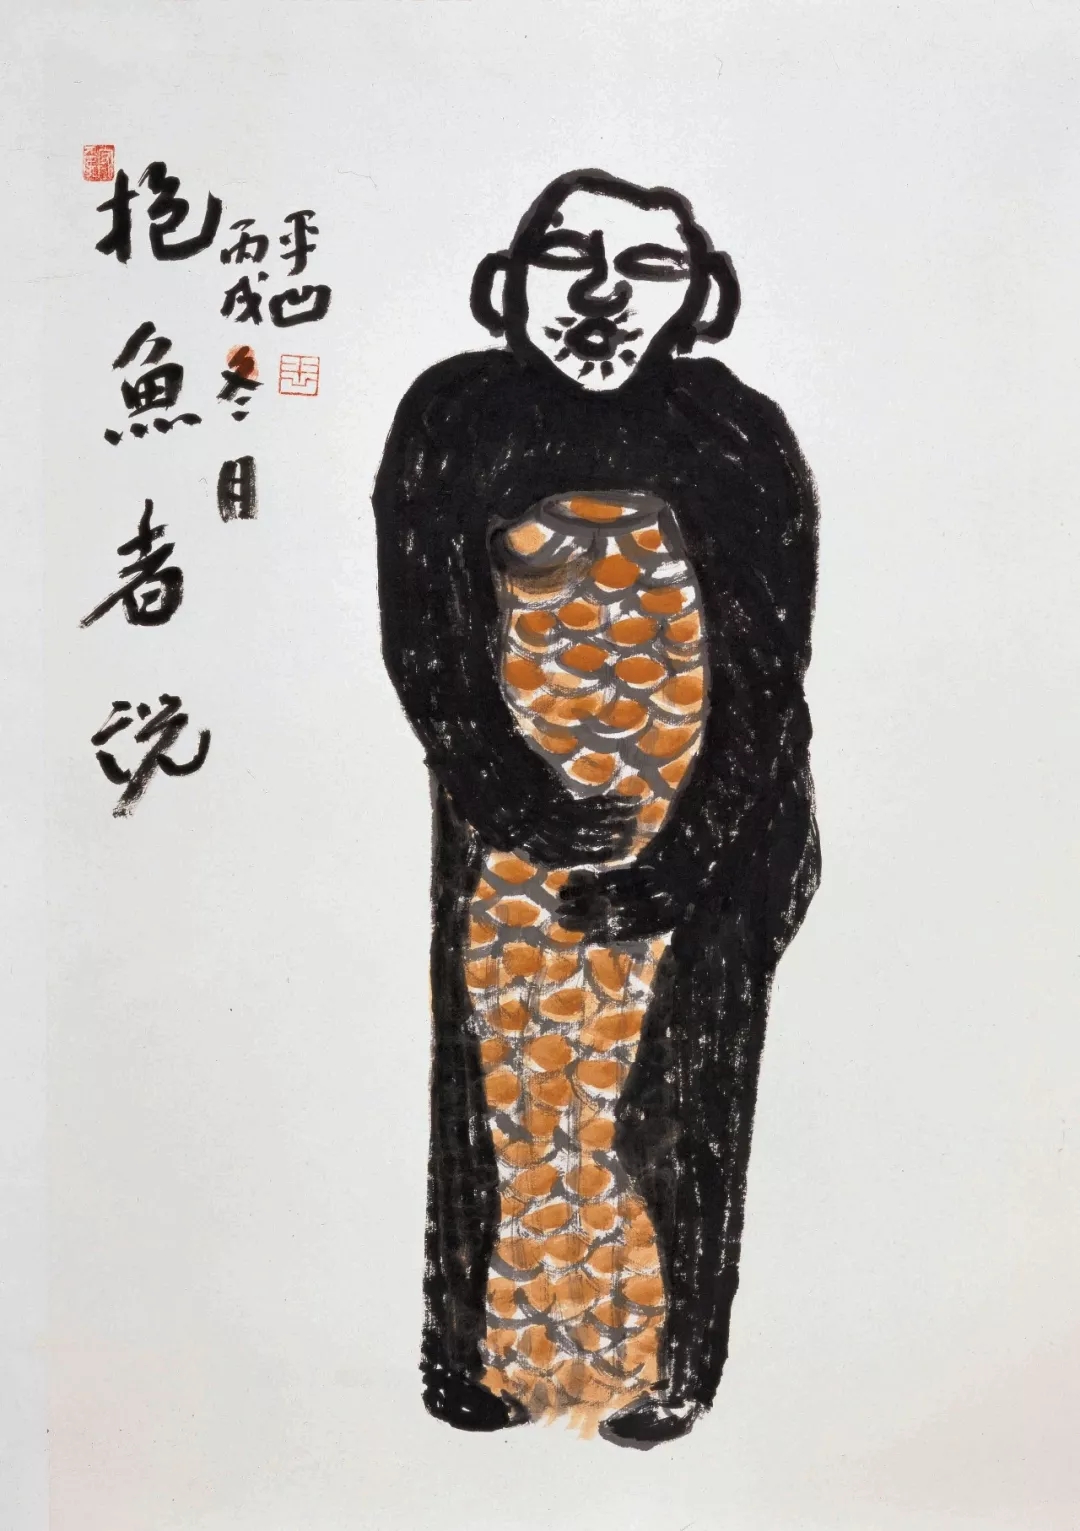 抱魚者说
丙戌冬月
平凹